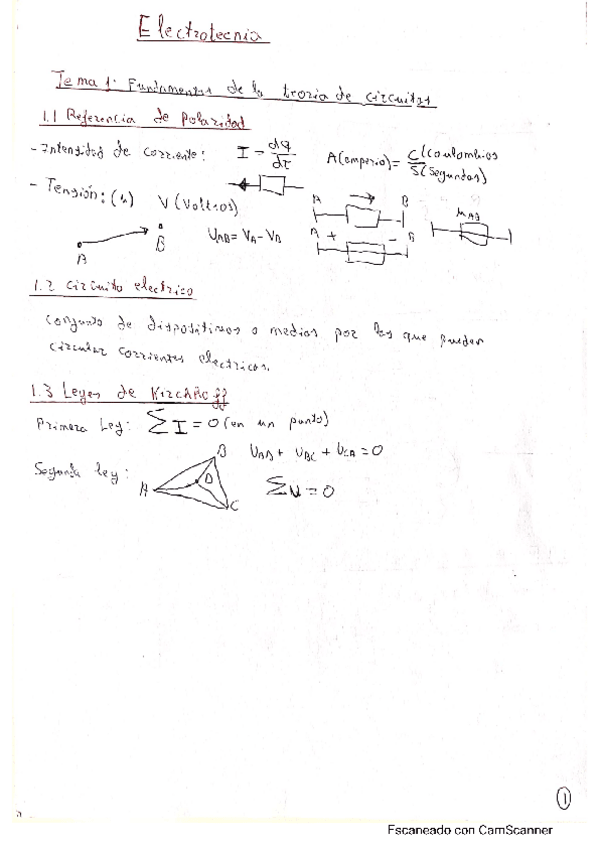 Electrotecnia
Tema 1: Fundamentos de la teoria de circuitos
1.1 Referencia de polaridad
- Intensidad de corriente: I = dq/dt A(amperio) = C(Coulombios)/S(Segundos)
- Tensión: (u) V (Voltios)
A B
U_AB = V_A - V_B
A B
A + - B
u_AB
1.2 Circuito electrico
Conjunto de dispositivos o medios por los que pueden
circular corrientes electricas.
1.3 Leyes de Kirchhoff
Primera Ley: ∑I = 0 (en un punto)
Segunda ley: A B C D U_AB + U_BC + U_CA = 0
∑u = 0
1
Escaneado con CamScanner